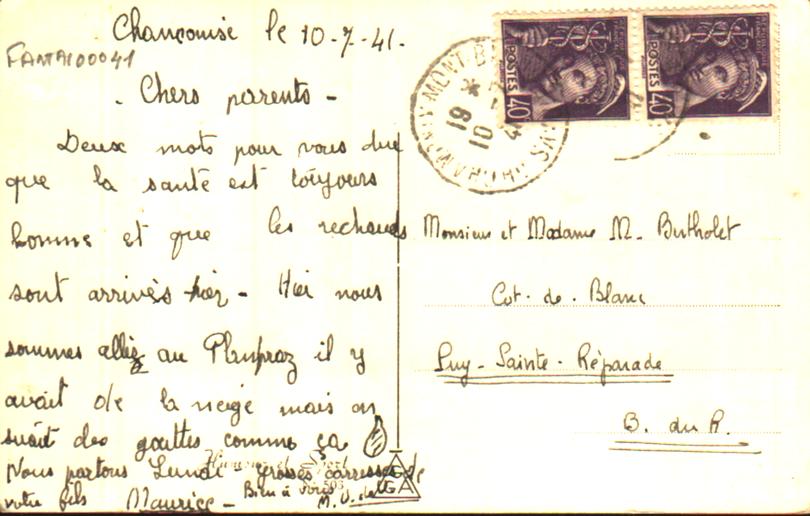 Chamonix le 10-7-41.
FANTA100041
- Chers parents -
Deux mots pour vous dire
que la santé est toujours
bonne et que les rechauds
sont arrivés hier - Hier nous
sommes allez au Planpraz il y
avait de la neige mais on
suait des gouttes comme ça
Nous partons Lundi - grosses caresses de
votre fils Maurice -
Bien à vous
Humour et Sport
503
GA
MONT-B
19
10
POSTES 40
POSTES 40
Monsieur et Madame M. Bertholet
Cot. de. Blanc
Puy - Sainte - Réparade
B. du R.